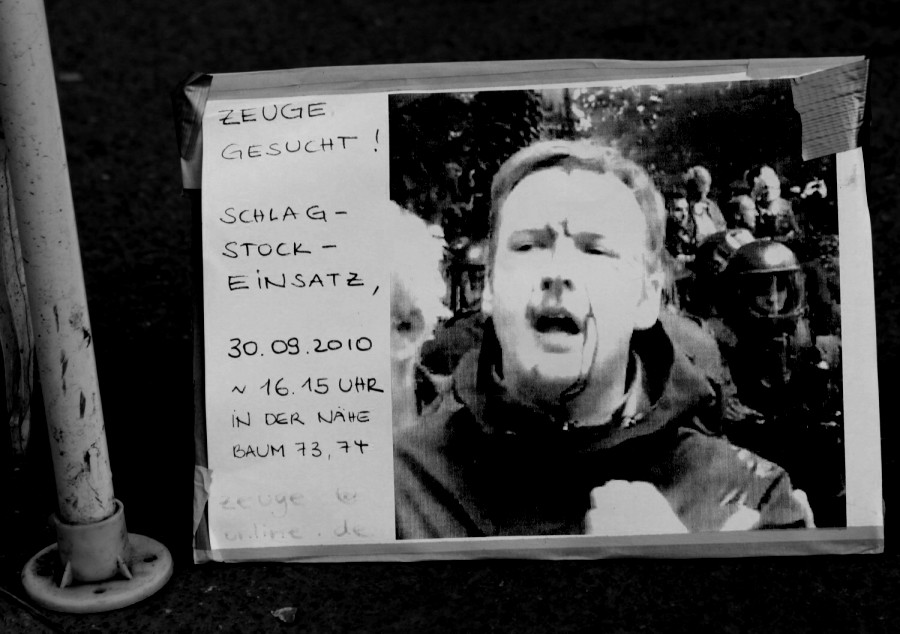 ZEUGE
GESUCHT !
SCHLAG-
STOCK-
EINSATZ,
30.09.2010
~ 16.15 UHR
IN DER NÄHE
BAUM 73, 74
zeuge @
online.de